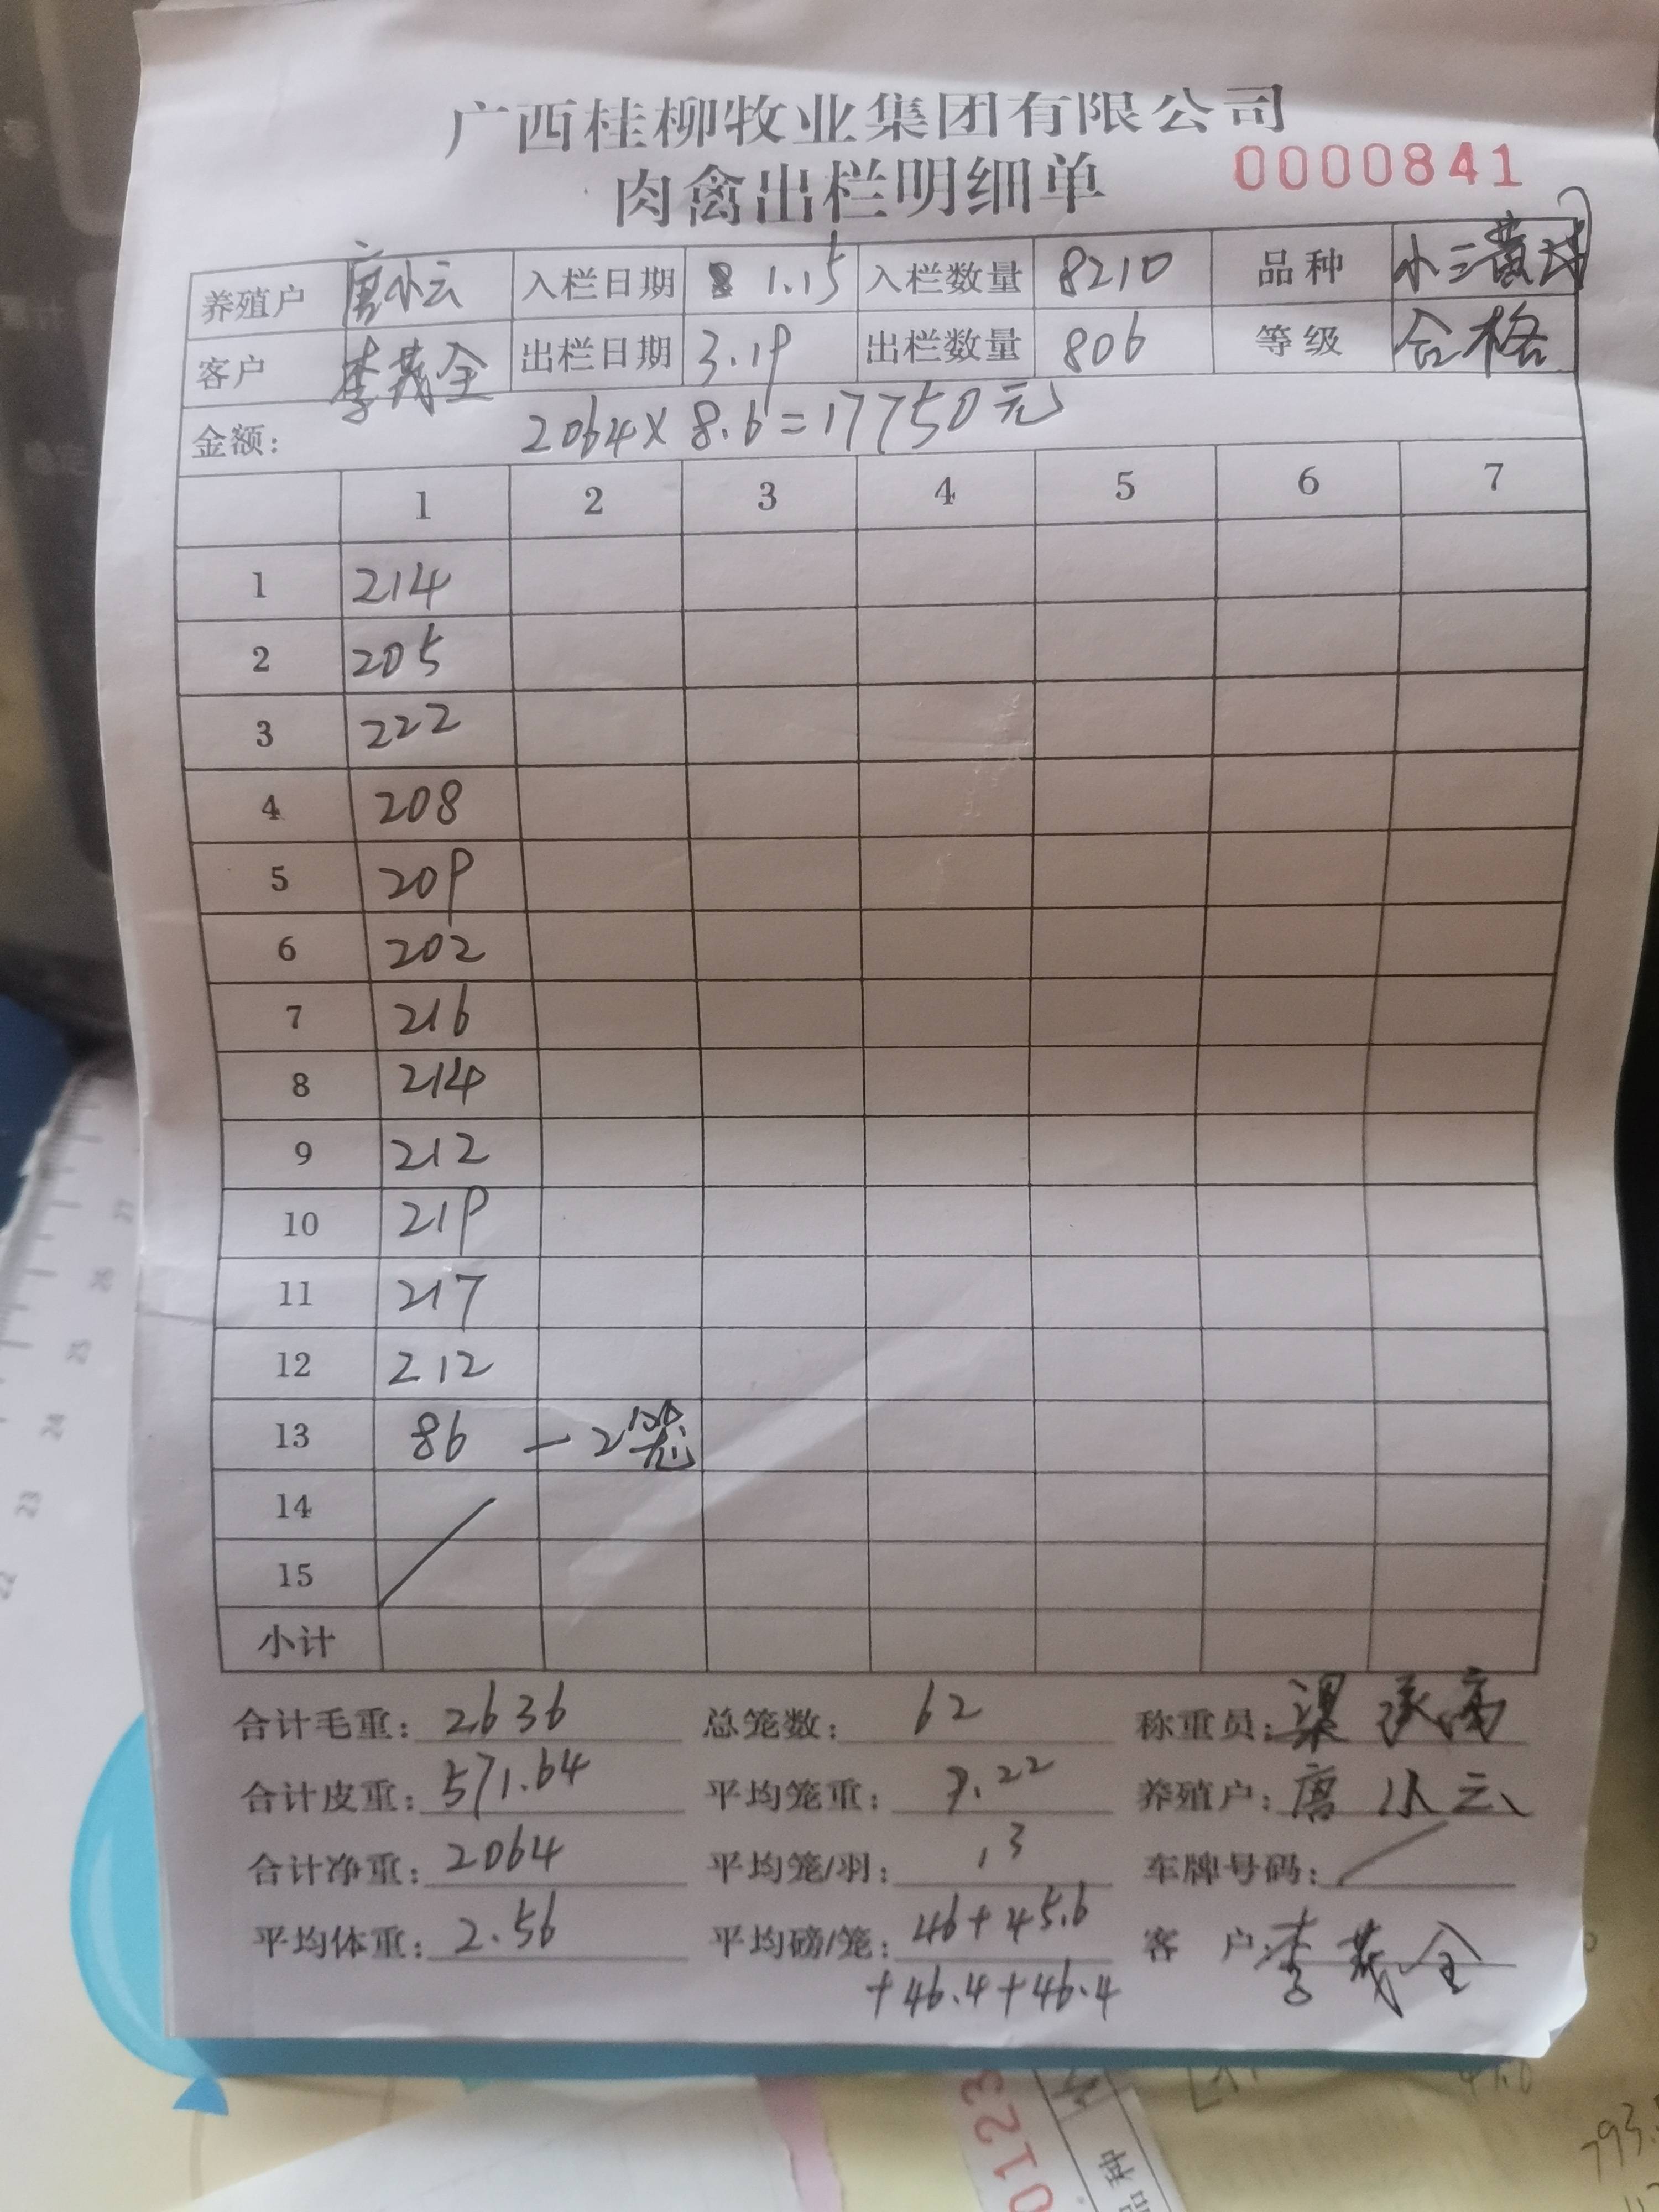 广西桂柳牧业集团有限公司
肉禽出栏明细单 0000841
养殖户 唐小云 入栏日期 1.15 入栏数量 8210 品种 小三黄
客户 李茂全 出栏日期 3.19 出栏数量 806 等级 合格
金额: 2064×8.6=17750元
1 2 3 4 5 6 7
1 214
2 205
3 222
4 208
5 209
6 202
7 216
8 214
9 212
10 219
11 217
12 212
13 86 — 2笼
14
15
小计
合计毛重: 2636 总笼数: 62 称重员: 梁
合计皮重: 571.64 平均笼重: 9.22 养殖户: 唐小云
合计净重: 2064 平均笼/羽: 13 车牌号码: /
平均体重: 2.56 平均磅/笼: 46+45.6 客 户: 李茂全
+46.4+46.4
27
26
25
24
23
22
0123
品种
793.